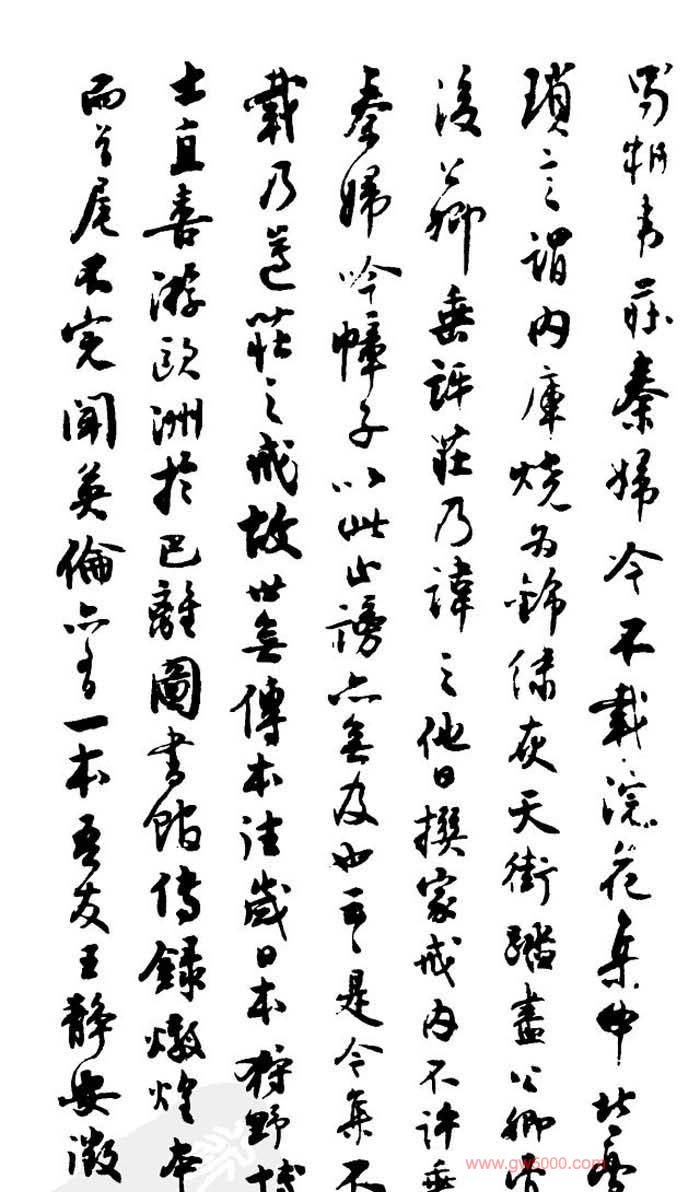 蜀相韦莊秦婦吟不載浣花集中北夢
瑣言謂内庫燒為錦綉灰天街踏盡公卿骨
後公卿垂訝莊乃諱之他日撰家戒内不許垂
秦婦吟幛子以此止謗亦無及也云云是今集不
載乃遵莊之戒故世無傳本往歲日本狩野博
士直喜游歐洲於巴離圖書館傳録燉煌本
而首尾不完聞英倫亦有一本吾友王静安徵
www.gw5000.com